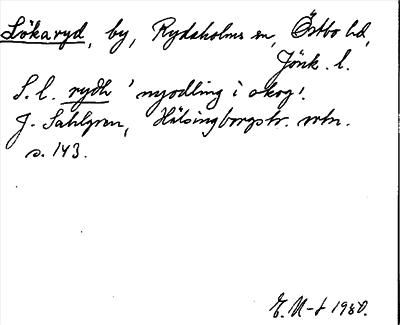 Lökaryd, by, Rydaholms sn, Östbo hd,
Jönk. l.
S. l. rydh 'nyodling i skog'.
J. Sahlgren, Hälsingborgstr. ortn.
s. 143.
E. M-t 1980.